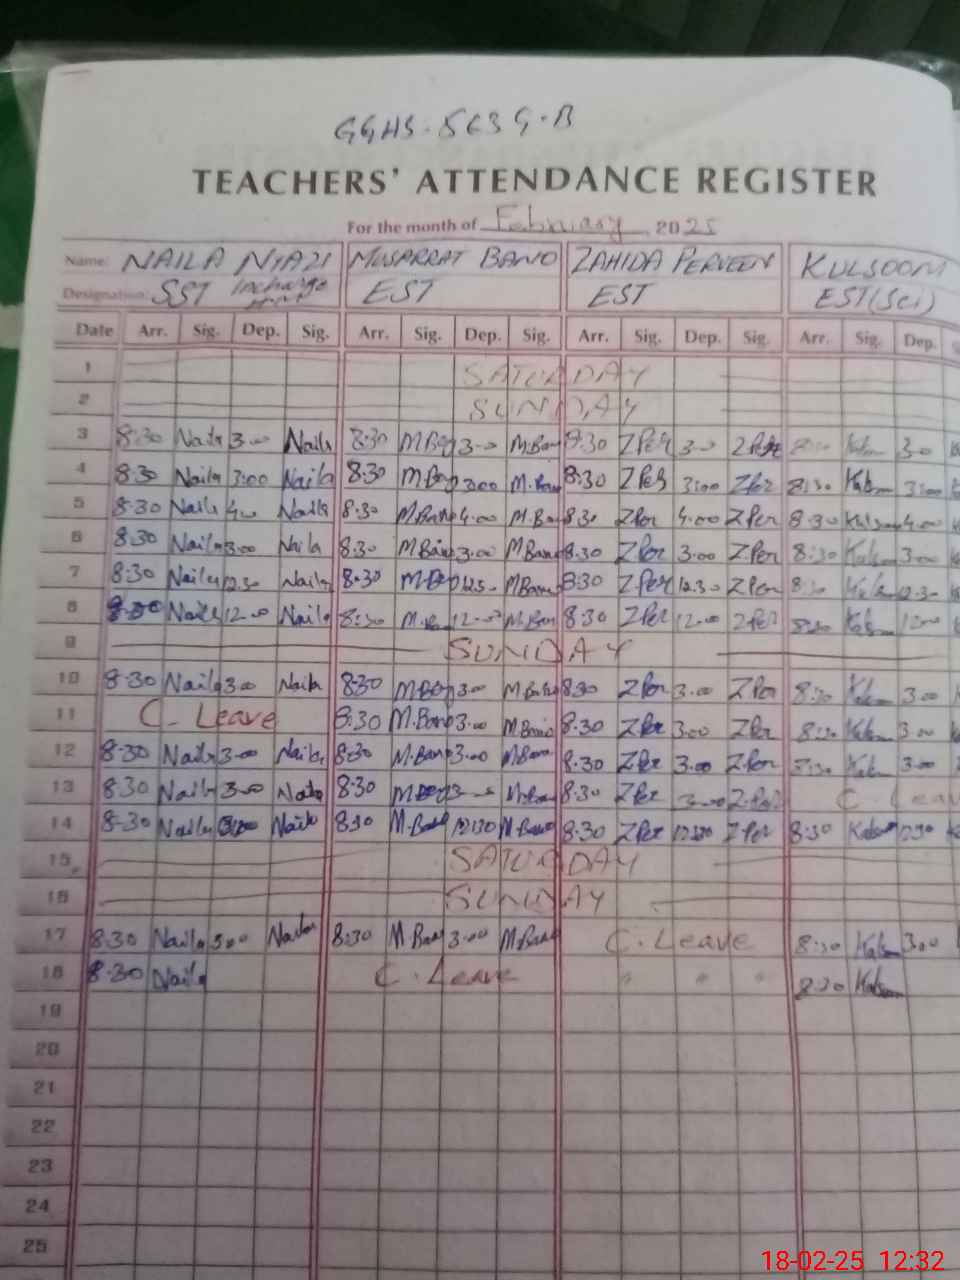 GGHS. 563 G.B
TEACHERS' ATTENDANCE REGISTER
For the month of February 2025
Name: NAILA NIAZI MUSARRAT BANO ZAHIDA PERVEEN KULSOOM
Designation: SST Incharge EST EST EST(Sci)
Date Arr. Sig. Dep. Sig. Arr. Sig. Dep. Sig. Arr. Sig. Dep. Sig. Arr. Sig. Dep.
1 SATURDAY
2 SUNDAY
3 8:30 Naila 3:00 Naila 8:30 M.Bano 3:00 M.Bano 8:30 Z Per 3:00 Z Per 3:00
4 8:30 Naila 3:00 Naila 8:30 M.Bano 3:00 M.Bano 8:30 Z Per 3:00 Z Per 8:30 3:00
5 8:30 Naila 4:00 Naila 8:30 M.Bano 4.00 M.Bano 8:30 Z Per 4.00 Z Per 8:30 Kulsoom 4.00
6 8:30 Naila 3:00 Naila 8:30 M Bano 3:00 M Bano 8.30 Z Per 3.00 Z.Per 8:30 Kulsoom 3:00
7 8:30 Naila 12.30 Naila 8.30 12.30 M Bano 8:30 Z Per 12.30 Z Per 8:30 12.30
8 8:30 Naila 12:00 Naila 8:30 12:00 M.Bano 8:30 Z Per 12:00 Z Per 8:30 12:00
9 SUNDAY
10 8:30 Naila 3:00 Naila 8:30 M.Bano 3:00 M.Bano 8:30 Z Per 3.00 Z Per 8:30 3.00
11 C. Leave 8:30 M.Bano 3:00 M.Bano 8.30 Z Per 3.00 Z Per 8:30 3:00
12 8:30 Naila 3:00 Naila 8:30 M.Bano 3:00 M Bano 8.30 Z Per 3.00 Z.Per 8:30 3:00
13 8:30 Naila 3:00 Naila 8:30 M.Bano 3:00 M.Bano 8:30 Z Per 3:00 Z.Per C. Leave
14 8-30 Naila Naila 8:30 M.Bano 12:30 M.Bano 8:30 Z Per 12:30 Z Per 8:30 12:30
15 SATURDAY
16 SUNDAY
17 8:30 Naila 3:00 Naila 8:30 M Bano 3:00 M.Bano C. Leave 8:30 3:00
18 8:30 Naila C. Leave " " " 8:30
19
20
21
22
23
24
25
18-02-25 12:32